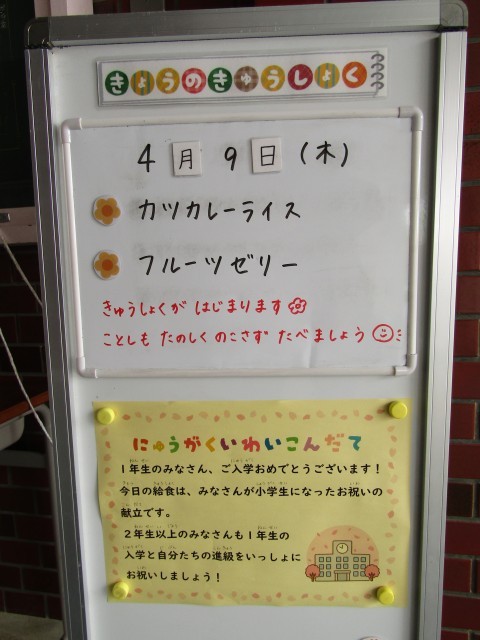 きょうのきゅうしょく
4月9日(木)
カツカレーライス
フルーツゼリー
きゅうしょくが はじまります
ことしも たのしく のこさず たべましょう
にゅうがくいわいこんだて
1年生のみなさん、ご入学おめでとうございます！
今日の給食は、みなさんが小学生になったお祝いの
献立です。
2年生以上のみなさんも1年生の
入学と自分たちの進級をいっしょに
お祝いしましょう！